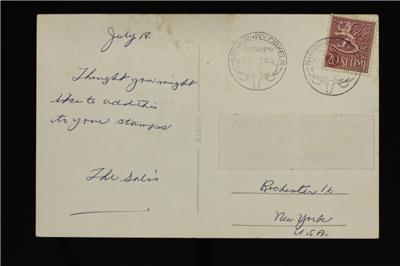 July 18.
Thought you might
like to add this
to your stamps
The Salo's
NAPAPIIRI • POLCIRKELN
20 SUOMI
Rochester 16
New York
U.S.A.